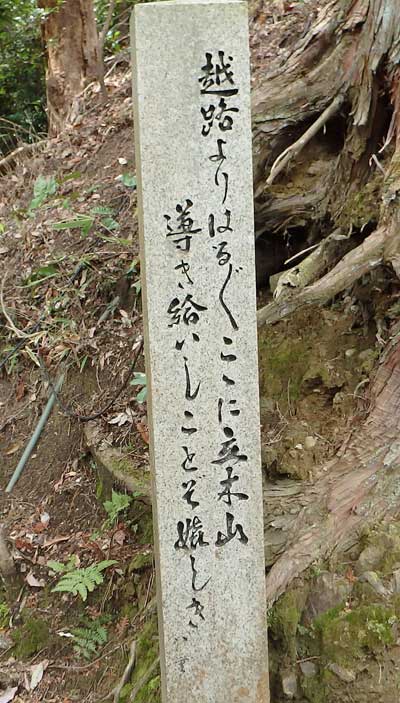 越路よりはる〲ここに立木山
導き給いしことぞ嬉しき